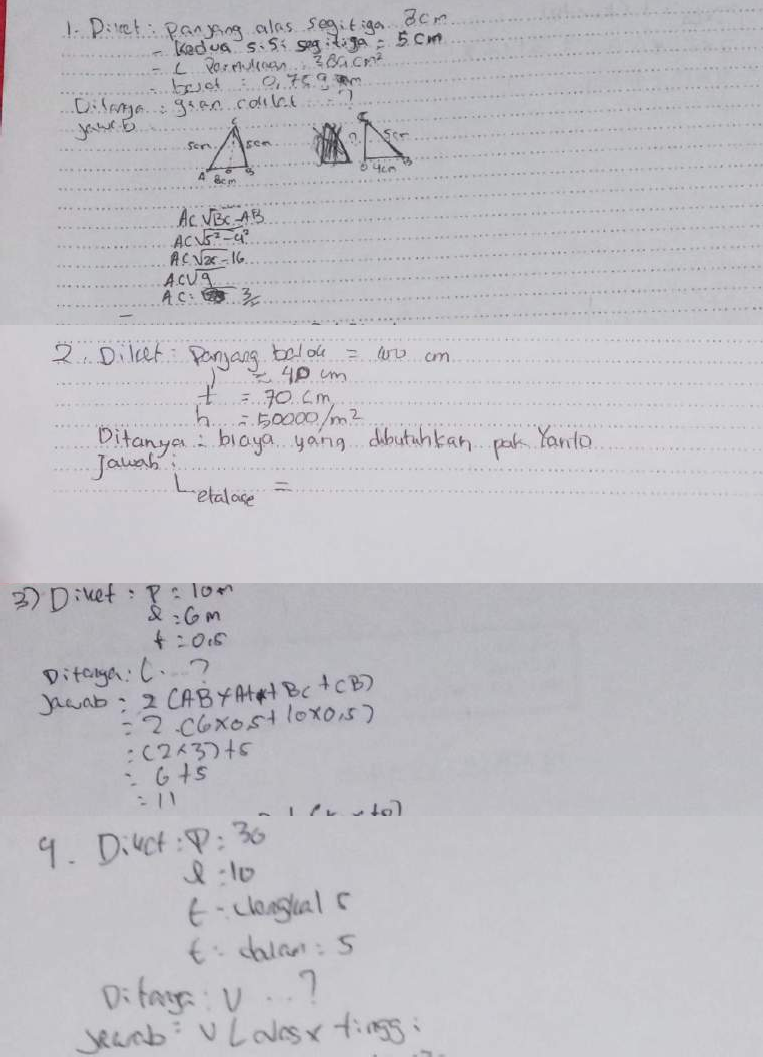 1. Diket : Panjang alas segitiga 8cm
- Kedua sisi segitiga = 5 cm
- L Permukaan : 384 cm²
- berat : 0,759
Ditanya : gran coklat = ?
Jawab
C
5cm 5cm
A D B
8cm
C
? 5cm
D 4cm B
AC √BC-AB
AC √5²-4²
AC √25-16
AC √9
AC : 3
2. Diket : Panjang balok = 100 cm
l = 40 cm
t = 70 cm
h = 50000/m²
Ditanya : biaya yang dibutuhkan pak Yanto
Jawab :
L etalase =
3) Diket : P : 10m
l : 6m
t : 0,5
Ditanya : L ... ?
Jawab : 2 (AB × At + BC + CB)
= 2 (6×0,5 + 10×0,5)
: (2×3) + 5
= 6 + 5
: 11
4. Diket : P : 30
l : 10
t = dangkal 5
t = dalam : 5
Ditanya : V ... ?
Jawab = V L alas x tinggi